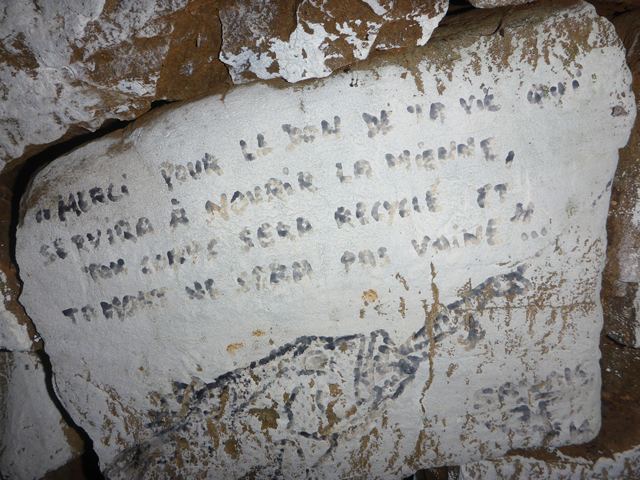 "MERCI POUR LE DON DE TA VIE QUI
SERVIRA À NOURIR LA MIENNE,
TON CORPS SERA RECYCLÉ ET
TA MORT NE SERA PAS VAINE"...